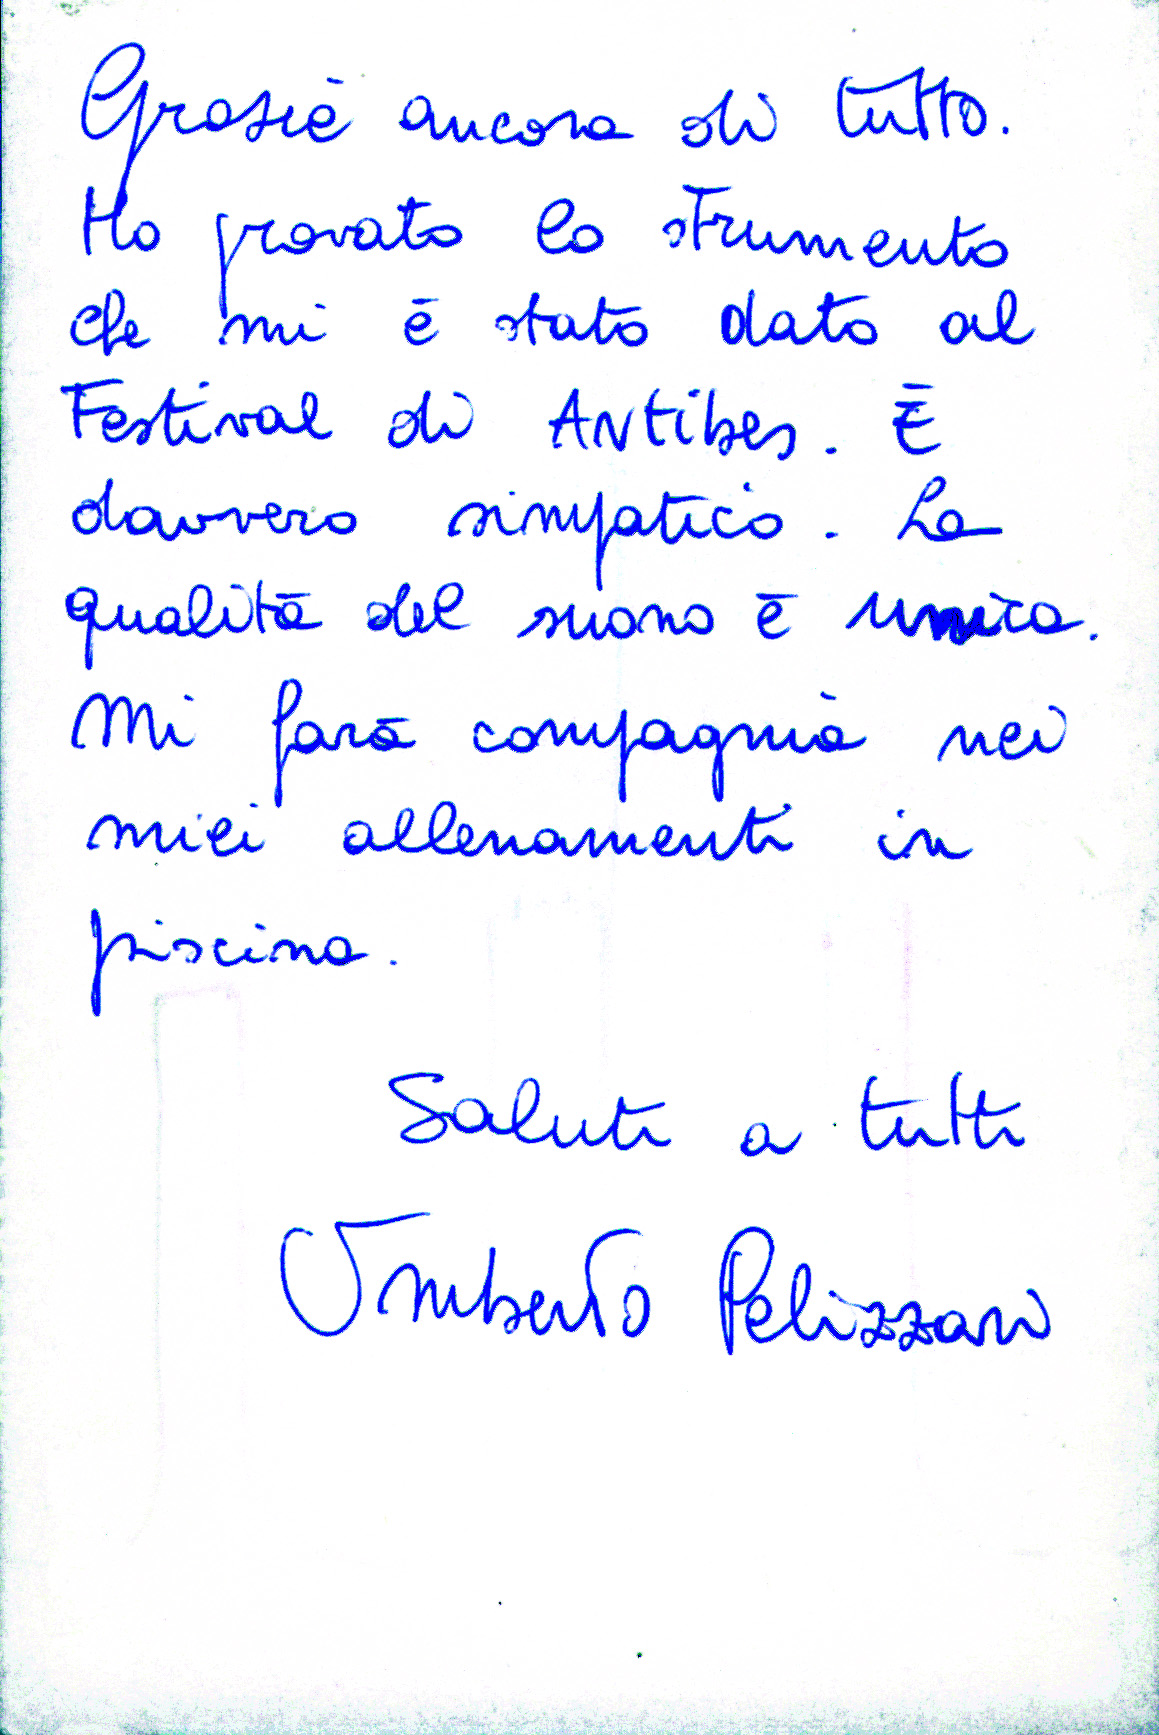 Grazie ancora di tutto.
Ho provato lo strumento
che mi è stato dato al
Festival di Antibes. È
davvero simpatico. La
qualità del suono è unica.
Mi farà compagnia nei
miei allenamenti in
piscina.
Saluti a tutti
Umberto Pelizzari